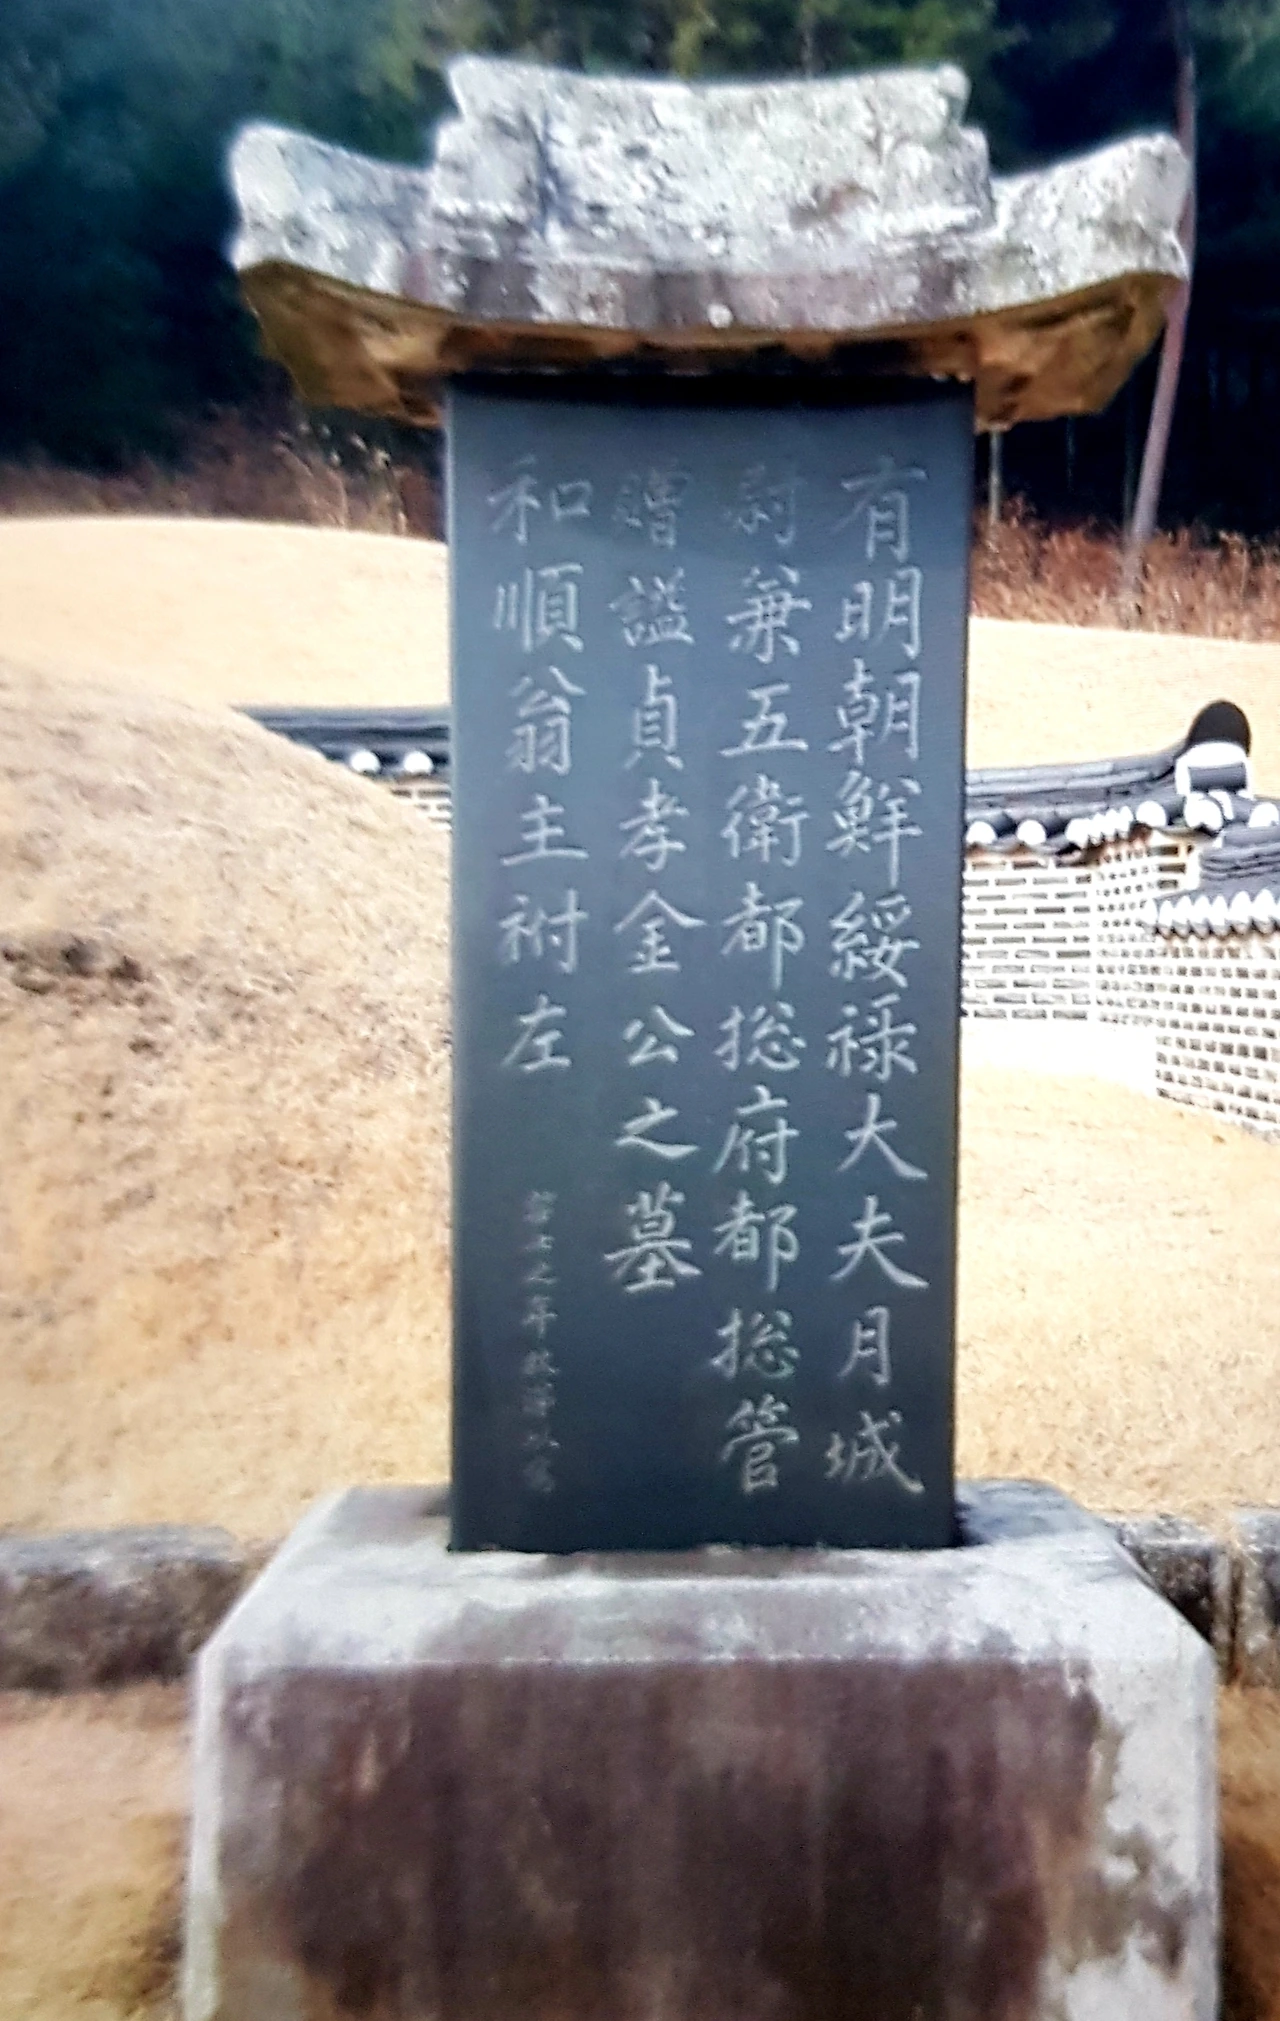 有明朝鮮綏祿大夫月城
尉兼五衛都捴府都捴管
贈諡貞孝金公之墓
和順翁主祔左